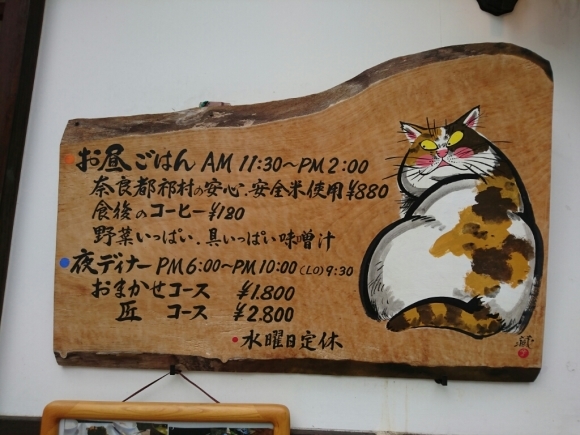 お昼ごはん AM 11:30〜PM 2:00
奈良都祁村の安心.安全米使用¥880
食後のコーヒー¥180
野菜いっぱい.具いっぱい味噌汁
夜ディナー PM 6:00〜PM 10:00 (LO) 9:30
おまかせコース ¥1.800
匠 コース ¥2.800
水曜日定休